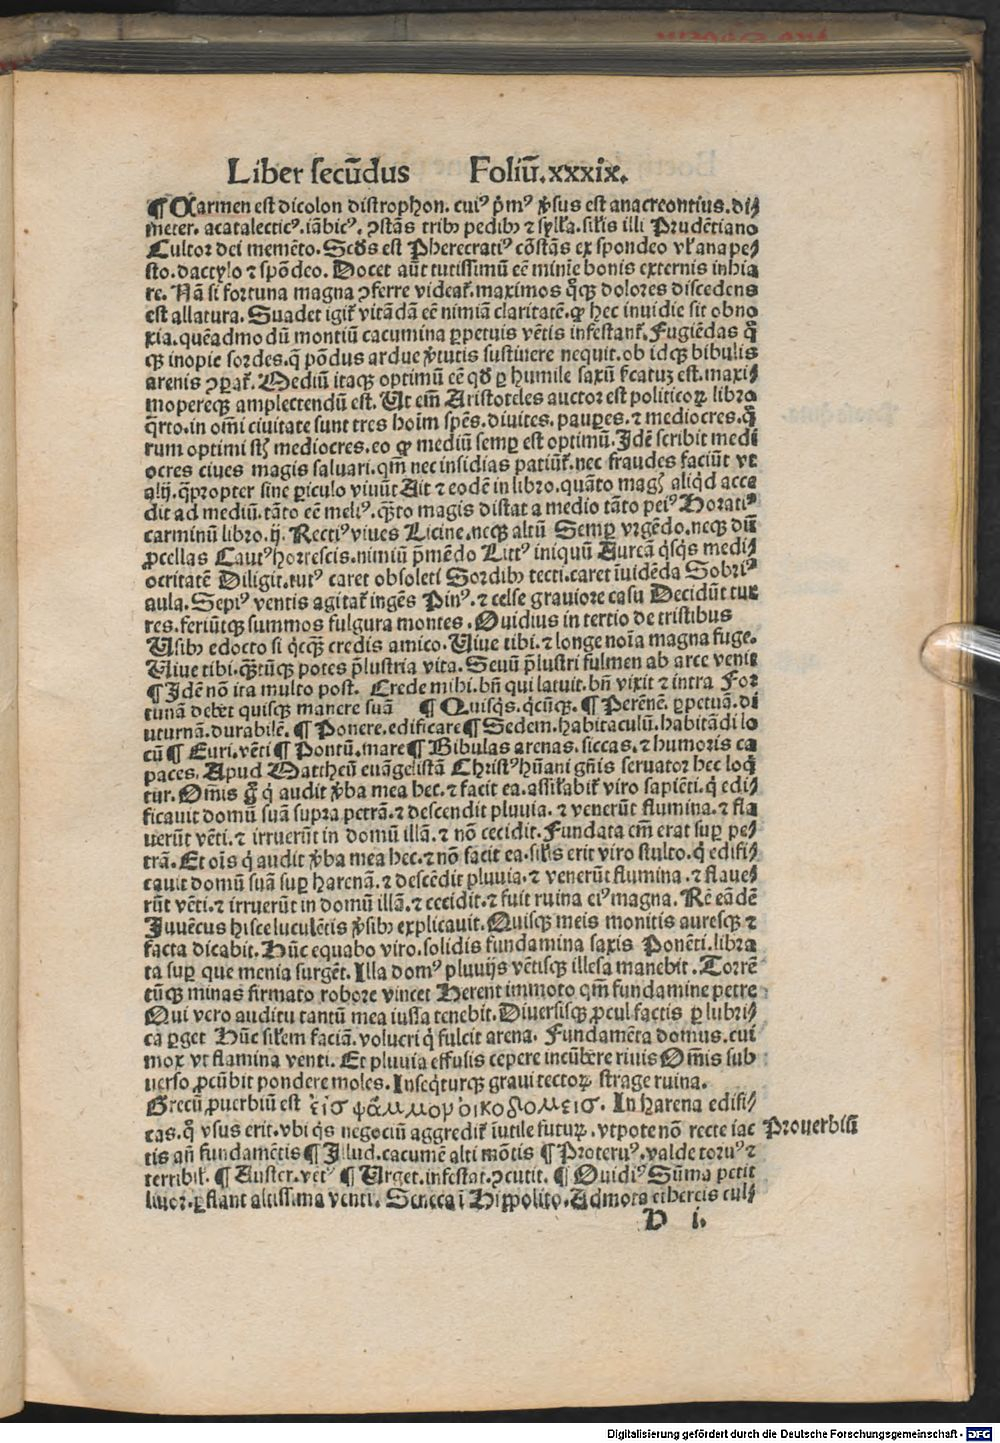 Liber secūdus Foliū.xxxix.
¶ Carmen est dicolon distrophon. cuiꝰ pͥmꝰ ꝟsus est anacreontius.di⸗
meter. acatalecticꝰ.iābicꝰ. ꝯstās tribꝫ pedibꝫ ⁊ syllͣa.silis illi Prudētiano
Cultor dei memēto. Scd̄s est Pherecratiꝰ cōstās ex spondeo vl̓ anape⸗
sto.dactylo ⁊ spōdeo. Docet aūt tutissimū eē minīe bonis externis inhia
re. Nā si fortuna magna ꝯferre videat̉.maximos qͣqꝫ dolores discedens
est allatura. Suadet igit̉ vitādā eē nimiā claritatē.ꝙ hec inuidie sit obno
xia.quēadmodū montiū cacumina ꝑpetuis vētis infestant̉. Fugiēdas qͦ
qꝫ inopie sordes.q̄ pōdus ardue ꝟtutis sustinere nequit.ob idqꝫ bibulis
arenis ꝯꝑat̉. Mediū itaqꝫ optimū eē qd̓ ꝑ humile saxū sͥcatuꝫ est.maxi⸗
mopereqꝫ amplectendū est. Ut em̄ Aristoteles auctor est politicoꝝ libro
qͣrto.in om̄i ciuitate sunt tres hoīm spēs.diuites. pauꝑes. ⁊ mediocres.qͣ
rum optimi sūt mediocres.eo ꝙ mediū semꝑ est optimū. Idē scribit medi
ocres ciues magis saluari.qm̄ nec insidias patiūt̉.nec fraudes faciūt vt
alij.q̄propter sine ꝑiculo viuūt Ait ⁊ eodē in libro.quāto magꝭ aliqͥd acce
dit ad mediū.tāto eē meliꝰ.qͣto magis distat a medio tāto peiꝰ Horatiꝰ
carminū libro.ij. Rectiꝰ viues Licine.neqꝫ altū Semꝑ vrgēdo.neqꝫ dū
ꝓcellas Cautꝰ horrescis.nimiū p̄mēdo Littꝰ iniquū Aureā qͥsqͥs medi⸗
ocritatē Diligit.tutꝰ caret obsoleti Sordibꝫ tecti.caret īuidēda Sobriꝰ
aula. Sepiꝰ ventis agitat̉ ingēs Pinꝰ.⁊ celse grauiore casu Decidūt tur
res.feriūtqꝫ summos fulgura montes. Ouidius in tertio de tristibus
Usibꝫ edocto si qͥcqͣꝫ credis amico. Uiue tibi.⁊ longe noīa magna fuge.
Uiue tibi.qͣꝫtūqꝫ potes p̄lustria vita. Seuū p̄lustri fulmen ab arce venit
¶ Idē nō ita multo post. Crede mihi.bn̄ qui latuit.bn̄ vixit ⁊ intra For
tunā debet quisqꝫ manere suā ¶ Quisqͥs.qͥcūqꝫ. ¶ Perēnē. ꝑpetuā.di
uturnā.durabilē. ¶ Ponere.edificare ¶ Sedem.habitaculū.habitādi lo
cū ¶ Euri.vēti ¶ Pontū.mare ¶ Bibulas arenas.siccas.⁊ humoris ca
paces. Apud Mattheū euāgelistā Christꝰ hūani gn̄is seruator hec loqͥ
tur. Om̄is gͦ qͥ audit ꝟba mea hec.⁊ facit ea.assil̓abit̉ viro sapiēti.qͥ edi⸗
ficauit domū suā supra petrā.⁊ descendit pluuia.⁊ venerūt flumina.⁊ fla
uerūt vēti.⁊ irruerūt in domū illā.⁊ nō cecidit. Fundata em̄ erat suꝑ pe⸗
trā. Et oīs qͥ audit ꝟba mea hec.⁊ nō facit ea.silis erit viro stulto.qͥ edifi⸗
cauit domū suā suꝑ harenā.⁊ descēdit pluuia.⁊ venerūt flumina.⁊ flaue⸗
rūt vēti.⁊ irruerūt in domū illā.⁊ cecidit.⁊ fuit ruina eiꝰ magna. Rē eādē
Iuuēcus hisce luculētis ꝟsibꝫ explicauit. Quisqꝫ meis monitis auresqꝫ ⁊
facta dicabit. Hūc equabo viro.solidis fundamina saxis Ponēti.libra
ta suꝑ que menia surgēt. Illa domꝰ pluuijs vētisqꝫ illesa manebit. Torrē
tūqꝫ minas firmato robore vincet Herent immoto qm̄ fundamine petre
Qui vero auditu tantū mea iussa tenebit. Diuersisqꝫ ꝓcul factis ꝑ lubri⸗
ca ꝑget Hūc silem faciā.volucri qͥ fulcit arena. Fundamēta domus.cui
mox vt flamina venti. Et pluuia effusis cepere incūbere riuis Om̄is sub
uerso ꝓcūbit pondere moles. Inseqͥturqꝫ graui tectoꝝ strage ruina.
Grecū ꝓuerbiū est εἰσ ψάμμον οἰκοδομεισ. In harena edifi⸗
cas.qͦ vsus erit.vbi qͥs negociū aggredit̉ īutile futuꝝ.vtpote nō recte iac Prouerbiū
tis añ fundamētis ¶ Illud.cacumē alti mōtis ¶ Proteruꝰ.valde toruꝰ ⁊
terribil̓. ¶ Auster.vētꝰ ¶ Urget.infestat.ꝯcutit. ¶ Ouidiꝰ Sūma petit
liuor.ꝑflant altissima venti. Seneca ī Hippolito. Admota ethereis cul⸗
D i.
Digitalisierung gefördert durch die Deutsche Forschungsgemeinschaft - DFG